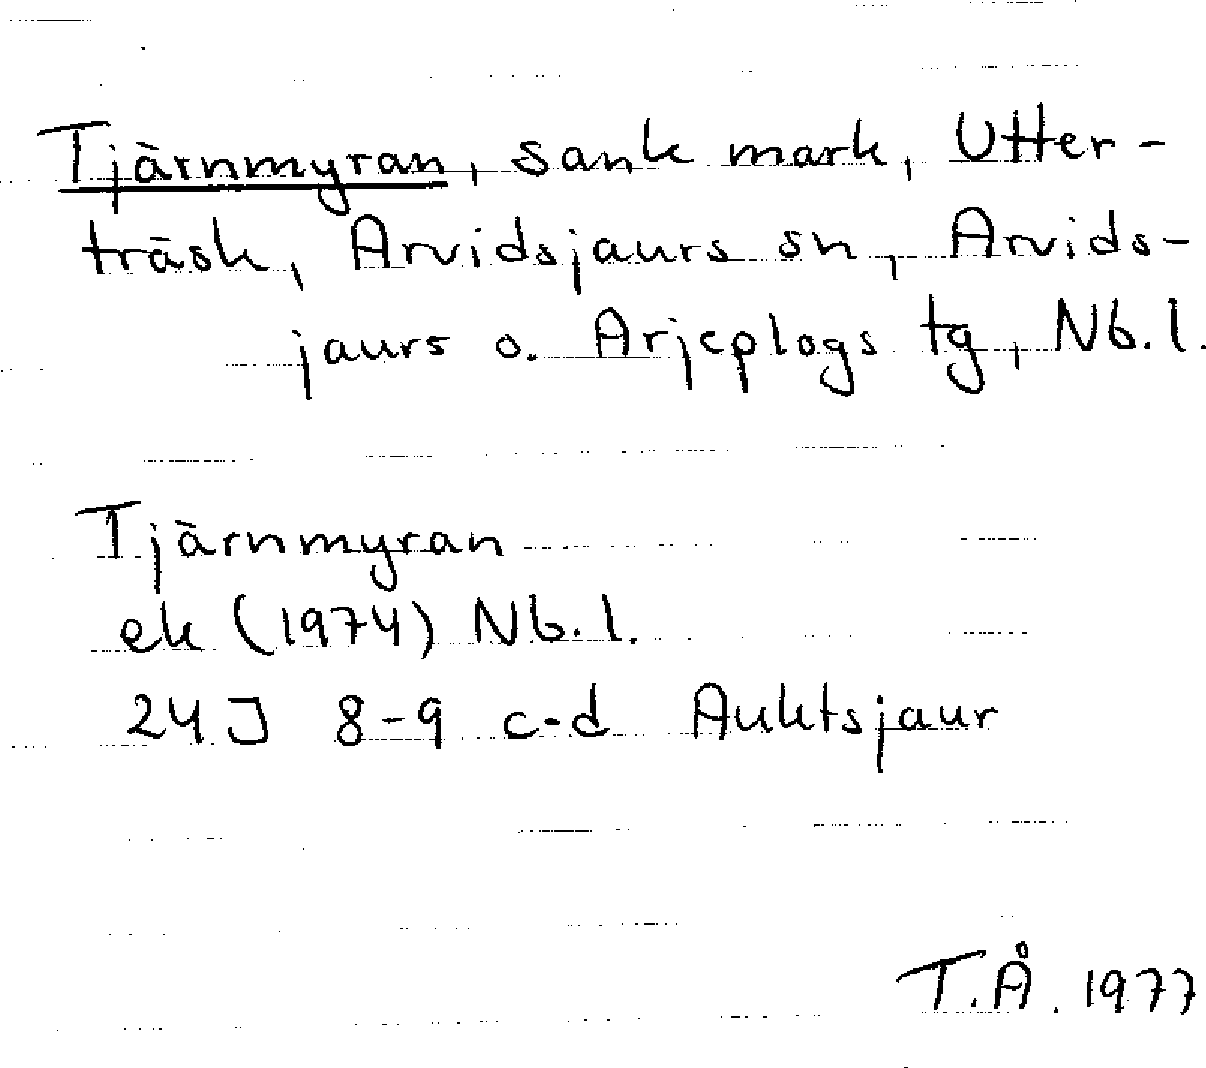 Tjärnmyran, sank mark, Utter-
träsk, Arvidsjaurs sn, Arvids-
jaurs o. Arjeplogs tg, Nb.l.
Tjärnmyran
ek (1974) Nb.l.
24J 8-9 c-d Auktsjaur
T.Å. 1977